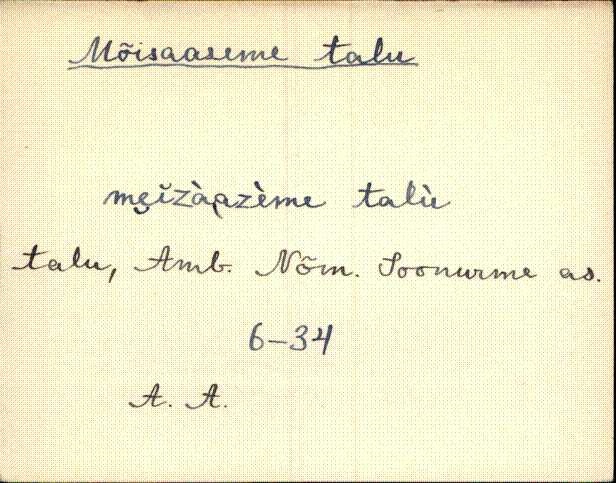 Mõisaaseme talu
me̮i̯zàa̮zème talù
talu, Amb. Nõm. Soonurme as.
6-34
A. A.